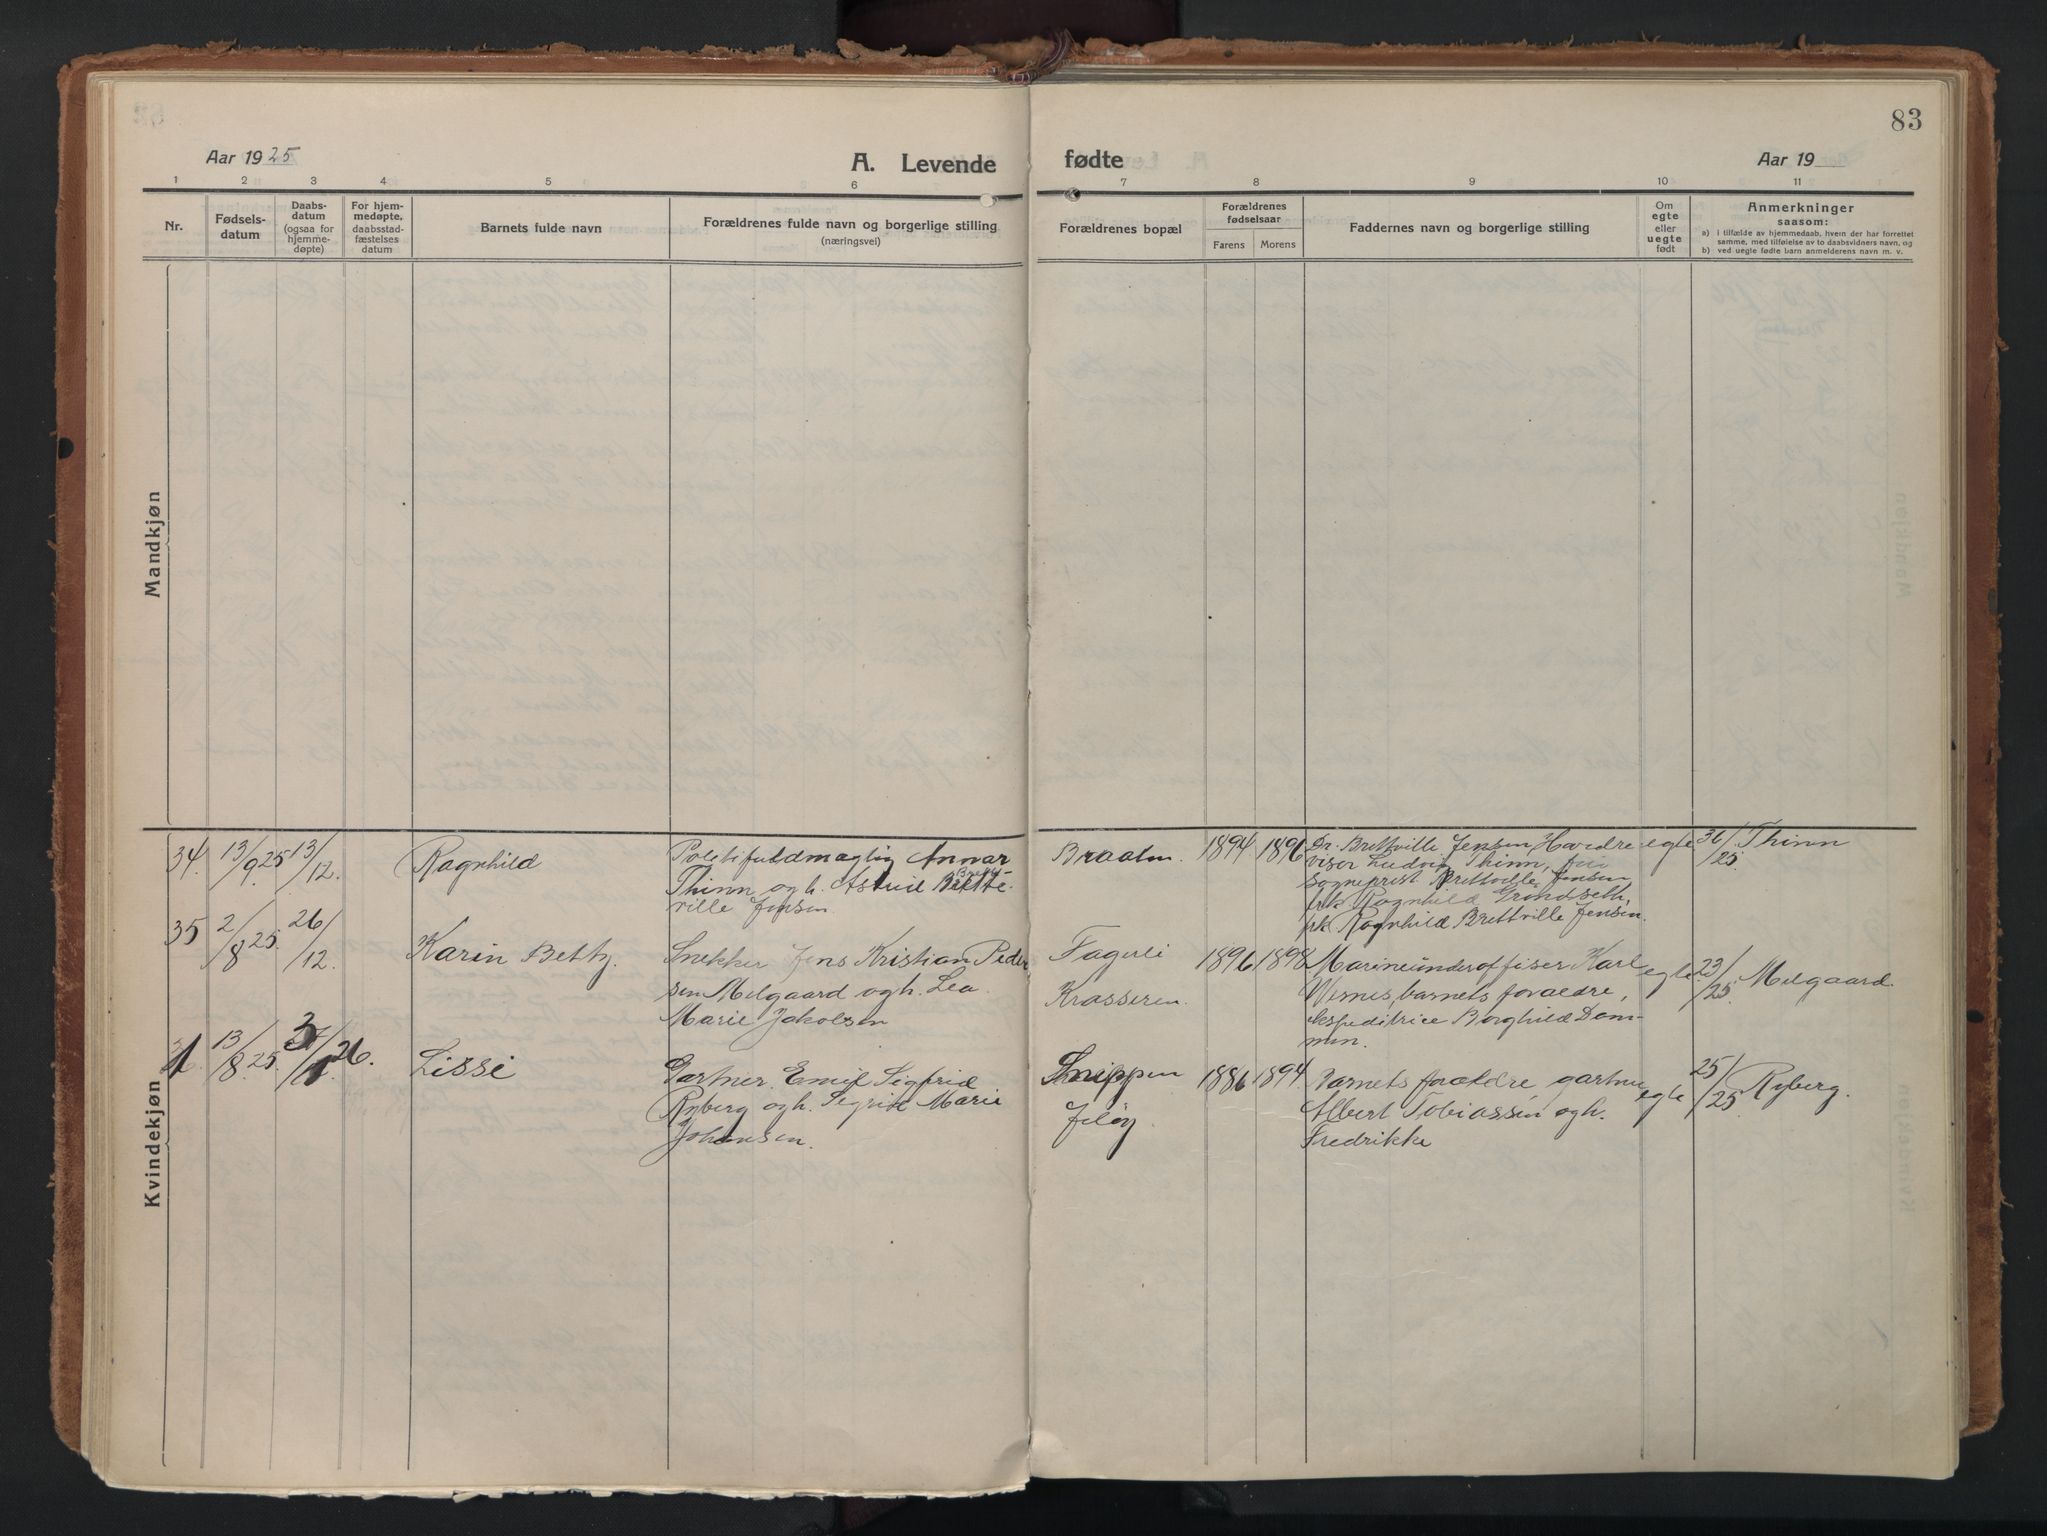 83
Aar 1925
A. Levende
fødte
Aar 19
1 2 3 4 5 6 7 8 9 10 11
Nr.
Fødsels-
datum
Daabs-
datum
(ogsaa for
hjemme-
døpte)
For hjem-
medøpte,
daabsstad-
fæstelses
datum
Barnets fulde navn
Forældrenes fulde navn og borgerlige stilling
(næringsvei)
Forældrenes bopæl
Forældrenes
fødselsaar
Farens Morens
Faddernes navn og borgerlige stilling
Om
egte
eller
uegte
født
Anmerkninger
saasom:
a) i tilfælde av hjemmedaab, hvem der har forrettet
samme, med tilføielse av to daabsvidners navn, og
b) ved uegte fødte barn anmelderens navn m. v.
Mandkjøn
Kvindekjøn
34. 13/9 25 13/12.
Ragnhild
Politifuldmægtig Annar
Thinn og h. Astrid Brett-
ville Jensen
Braaten.
1894 1896
Dr. Brettville Jensen
viser Ludvig Thinn, fru
sogneprest Brettville Jensen
frk Ragnhild Grondseth,
frk Ragnhild Brettville Jensen.
egte
Thinn
35 2/8 25. 26/12.
Karin Betty.
Snekker Jens Kristian Peder
sen Melgaard og h. Lea
Marie Jakobsen
Fagerli
Krasseren.
1896 1898
Marineunderoffiser Karl
Wernes, barnets forældre,
ekspeditrice Borghild Dam-
men.
egte.
23/25. Melgaard.
1. 13/8 25. 26.
Lissi
Gartner Emil Sigfrid
Ryberg og h. Sigrid Marie
Johansen.
Snippen
Jeløy
1886 1894
Barnets forældre gartner
Albert Tobiassen og h.
Fredrikke
egte
25/25 Ryberg.